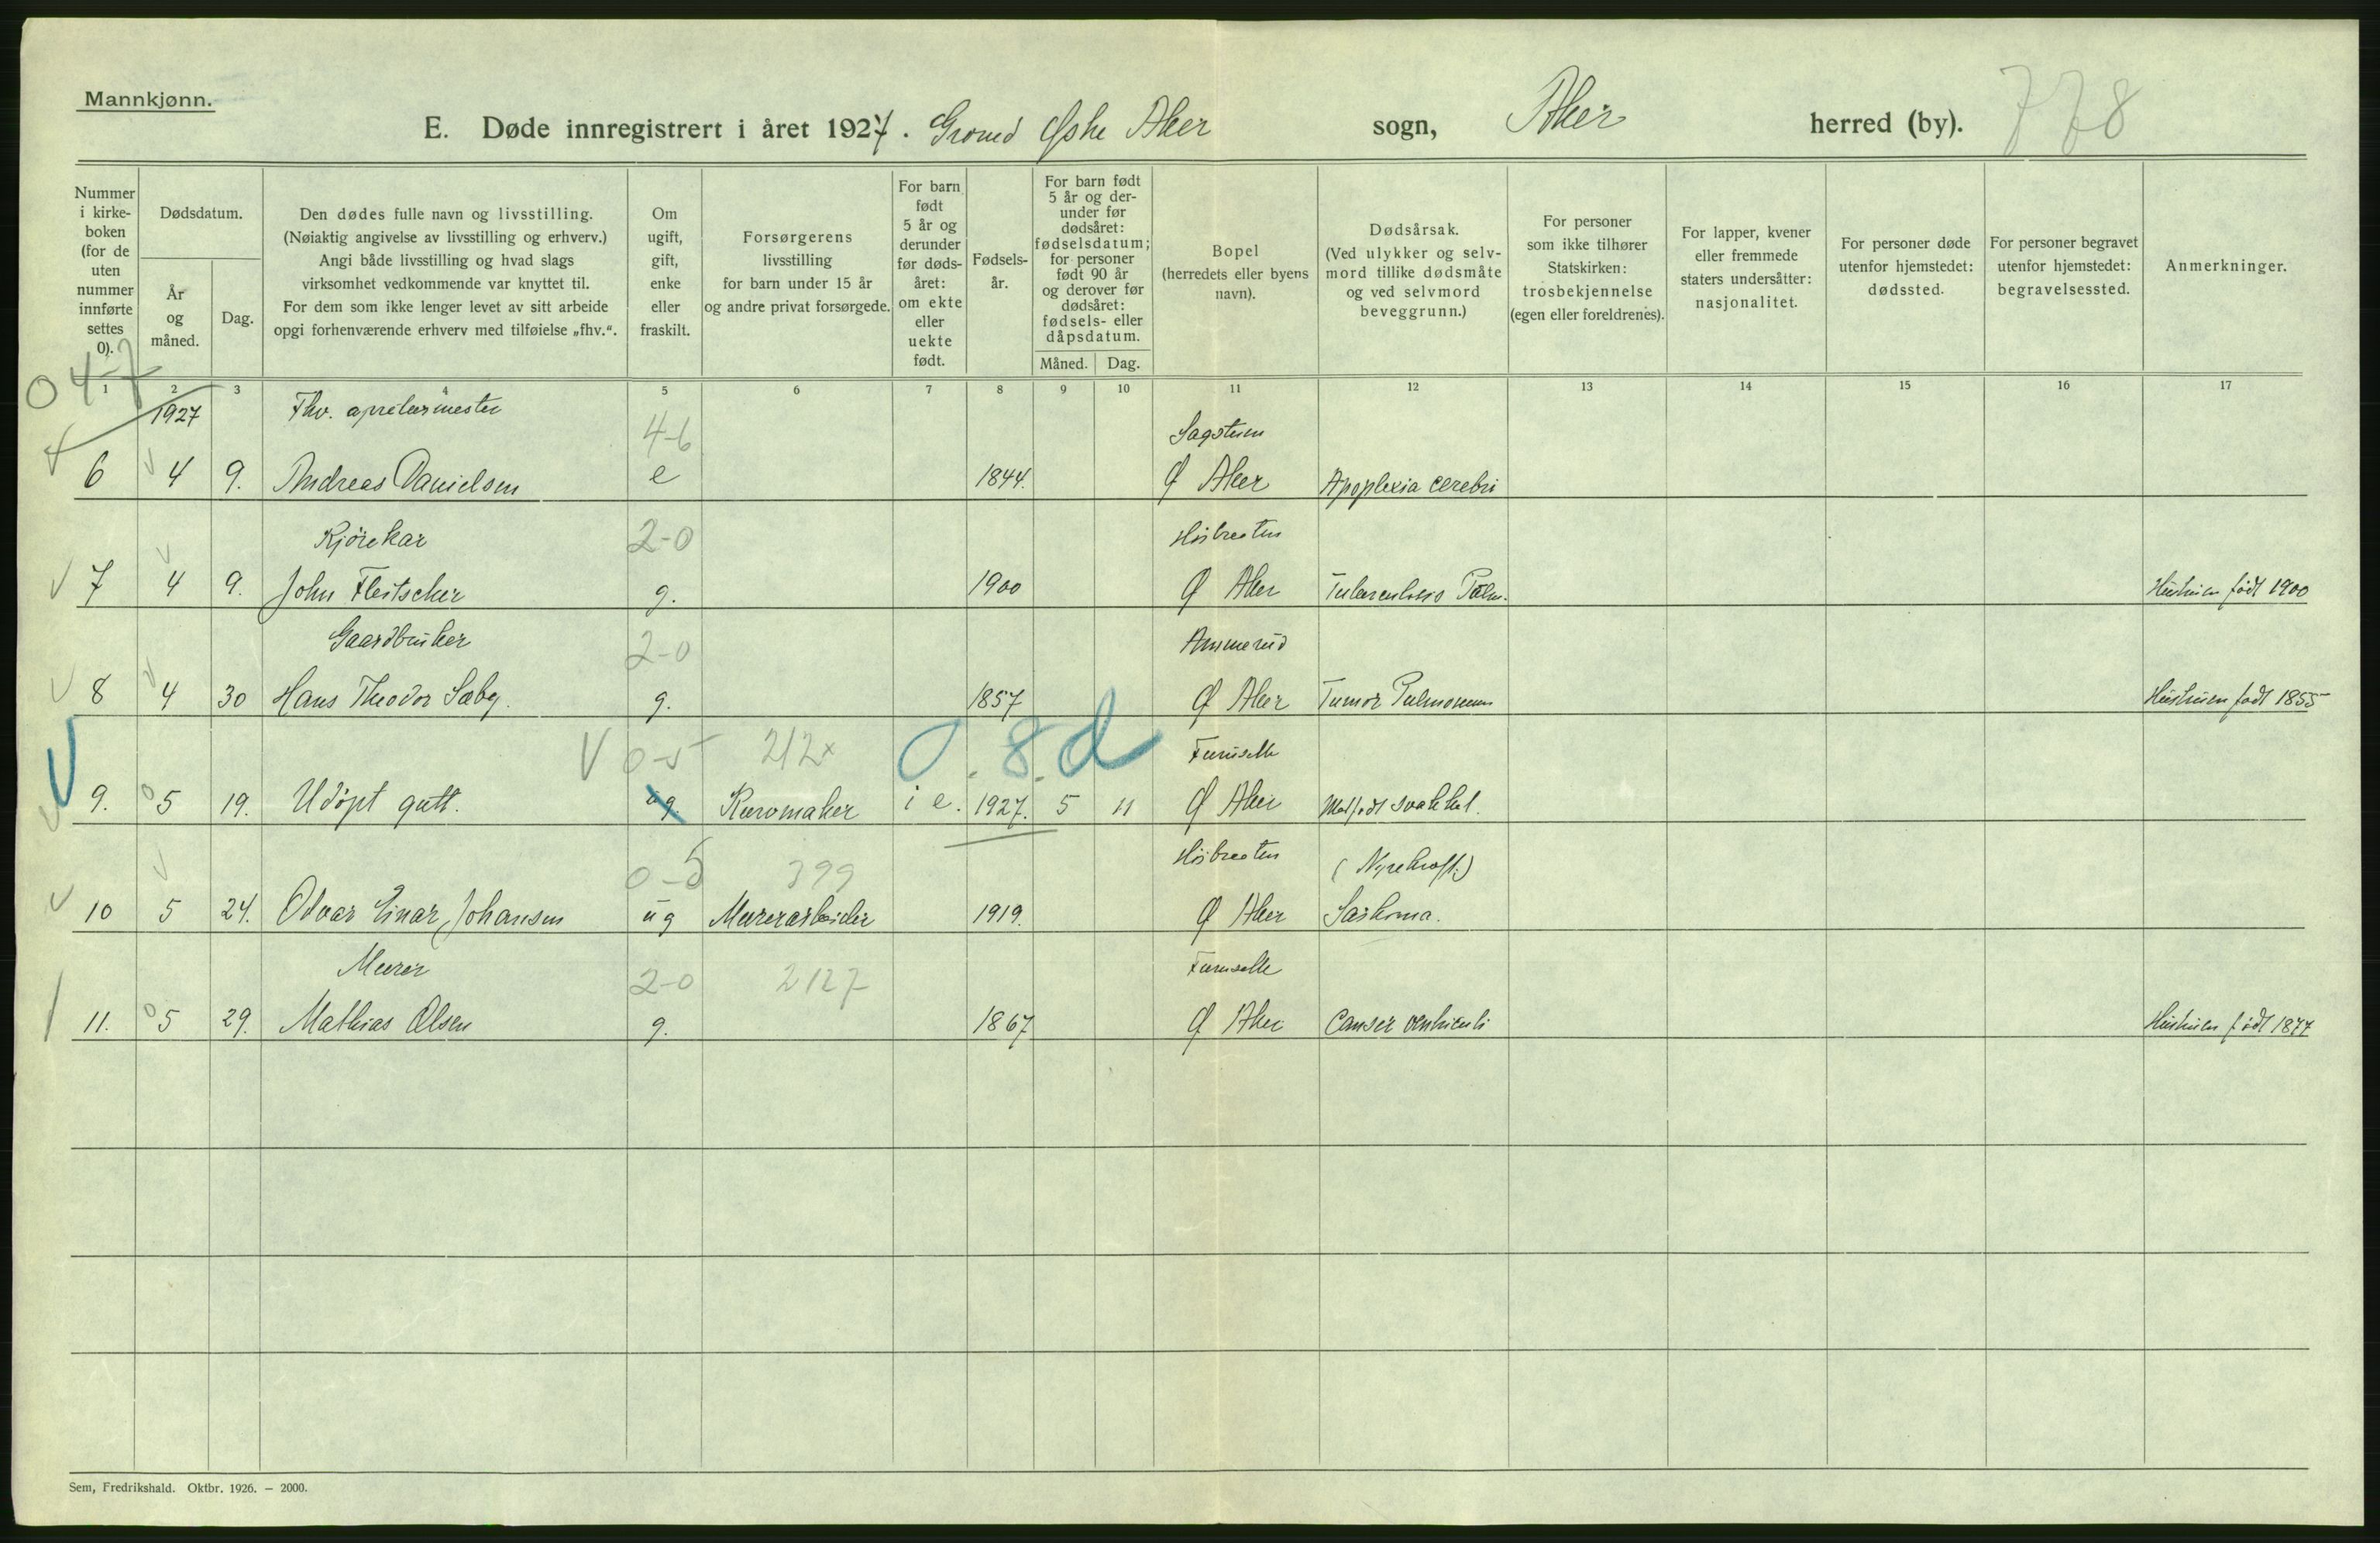 Mannkjønn.
E. Døde innregistrert i året 1927. Grorud Østre Aker sogn, Aker herred (by). 778
Nummer i kirke- boken (for de uten nummer innførte settes 0).
Dødsdatum.
År og måned.
Dag.
Den dødes fulle navn og livsstilling.
(Nøiaktig angivelse av livsstilling og erhverv.)
Angi både livsstilling og hvad slags
virksomhet vedkommende var knyttet til.
For dem som ikke lenger levet av sitt arbeide
opgi forhenværende erhverv med tilføielse „fhv.“.
Om ugift, gift, enke eller fraskilt.
Forsørgerens
livsstilling
for barn under 15 år
og andre privat forsørgede.
For barn født 5 år og derunder før døds- året: om ekte eller uekte født.
Fødsels- år.
For barn født 5 år og der- under før dødsåret: fødselsdatum; for personer født 90 år og derover før dødsåret: fødsels- eller dåpsdatum.
Måned.
Dag.
Bopel
(herredets eller byens
navn).
Dødsårsak.
(Ved ulykker og selv-
mord tillike dødsmåte
og ved selvmord
beveggrunn.)
For personer
som ikke tilhører
Statskirken:
trosbekjennelse
(egen eller foreldrenes).
For lapper, kvener
eller fremmede
staters undersåtter:
nasjonalitet.
For personer døde
utenfor hjemstedet:
dødssted.
For personer begravet
utenfor hjemstedet:
begravelsessted.
Anmerkninger.
047
1 2 3 4 5 6 7 8 9 10 11 12 13 14 15 16 17
1927 Fhv. apreturmester 4-6 Sagstuen
6 4 9. Andreas Danielsen e 1844. Ø Aker Apoplexia cerebri
Kjørekar 2-0 Høibraaten
7 4 9. John Fleitscher g. 1900 Ø Aker Tuberculosis Pulm. Hustruen født 1900
Gaardbruker 2-0 Ammerud
8 4 30 Hans Theodor Sæby. g. 1857 Ø Aker Tumor Pulmonum Hustruen født 1855
V 0-5 212x 0.8.d Furuseth
9. 5 19. Udøpt gutt. ug Kurvmaker i e. 1927. 5 11 Ø Aker Medfødt svakhet.
0-5 399 Høibraaten (Nyrekræft.)
10 5 24. Odvar Einar Johansen ug Murerarbeider 1919. Ø Aker Sarkoma.
Murer 2-0 2127 Furuseth
11. 5 29. Mathias Olsen g. 1867 Ø Aker Canser ventriculi Hustruen født 1877
Sem, Fredrikshald. Oktbr. 1926. — 2000.